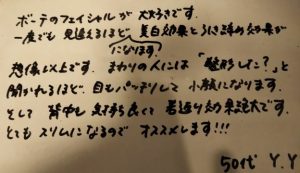 ボーテのフェイシャルが大好きです。
一度でも見違えるほど美白効果と引き締め効果が
になります
想像以上です。まわりの人には「整形した？」と
聞かれるほど、目もパッチリして小顔になります。
そして背中も気持ち良くて若返り効果絶大です。
とてもスリムになるのでオススメします!!!
50代 Y.Y